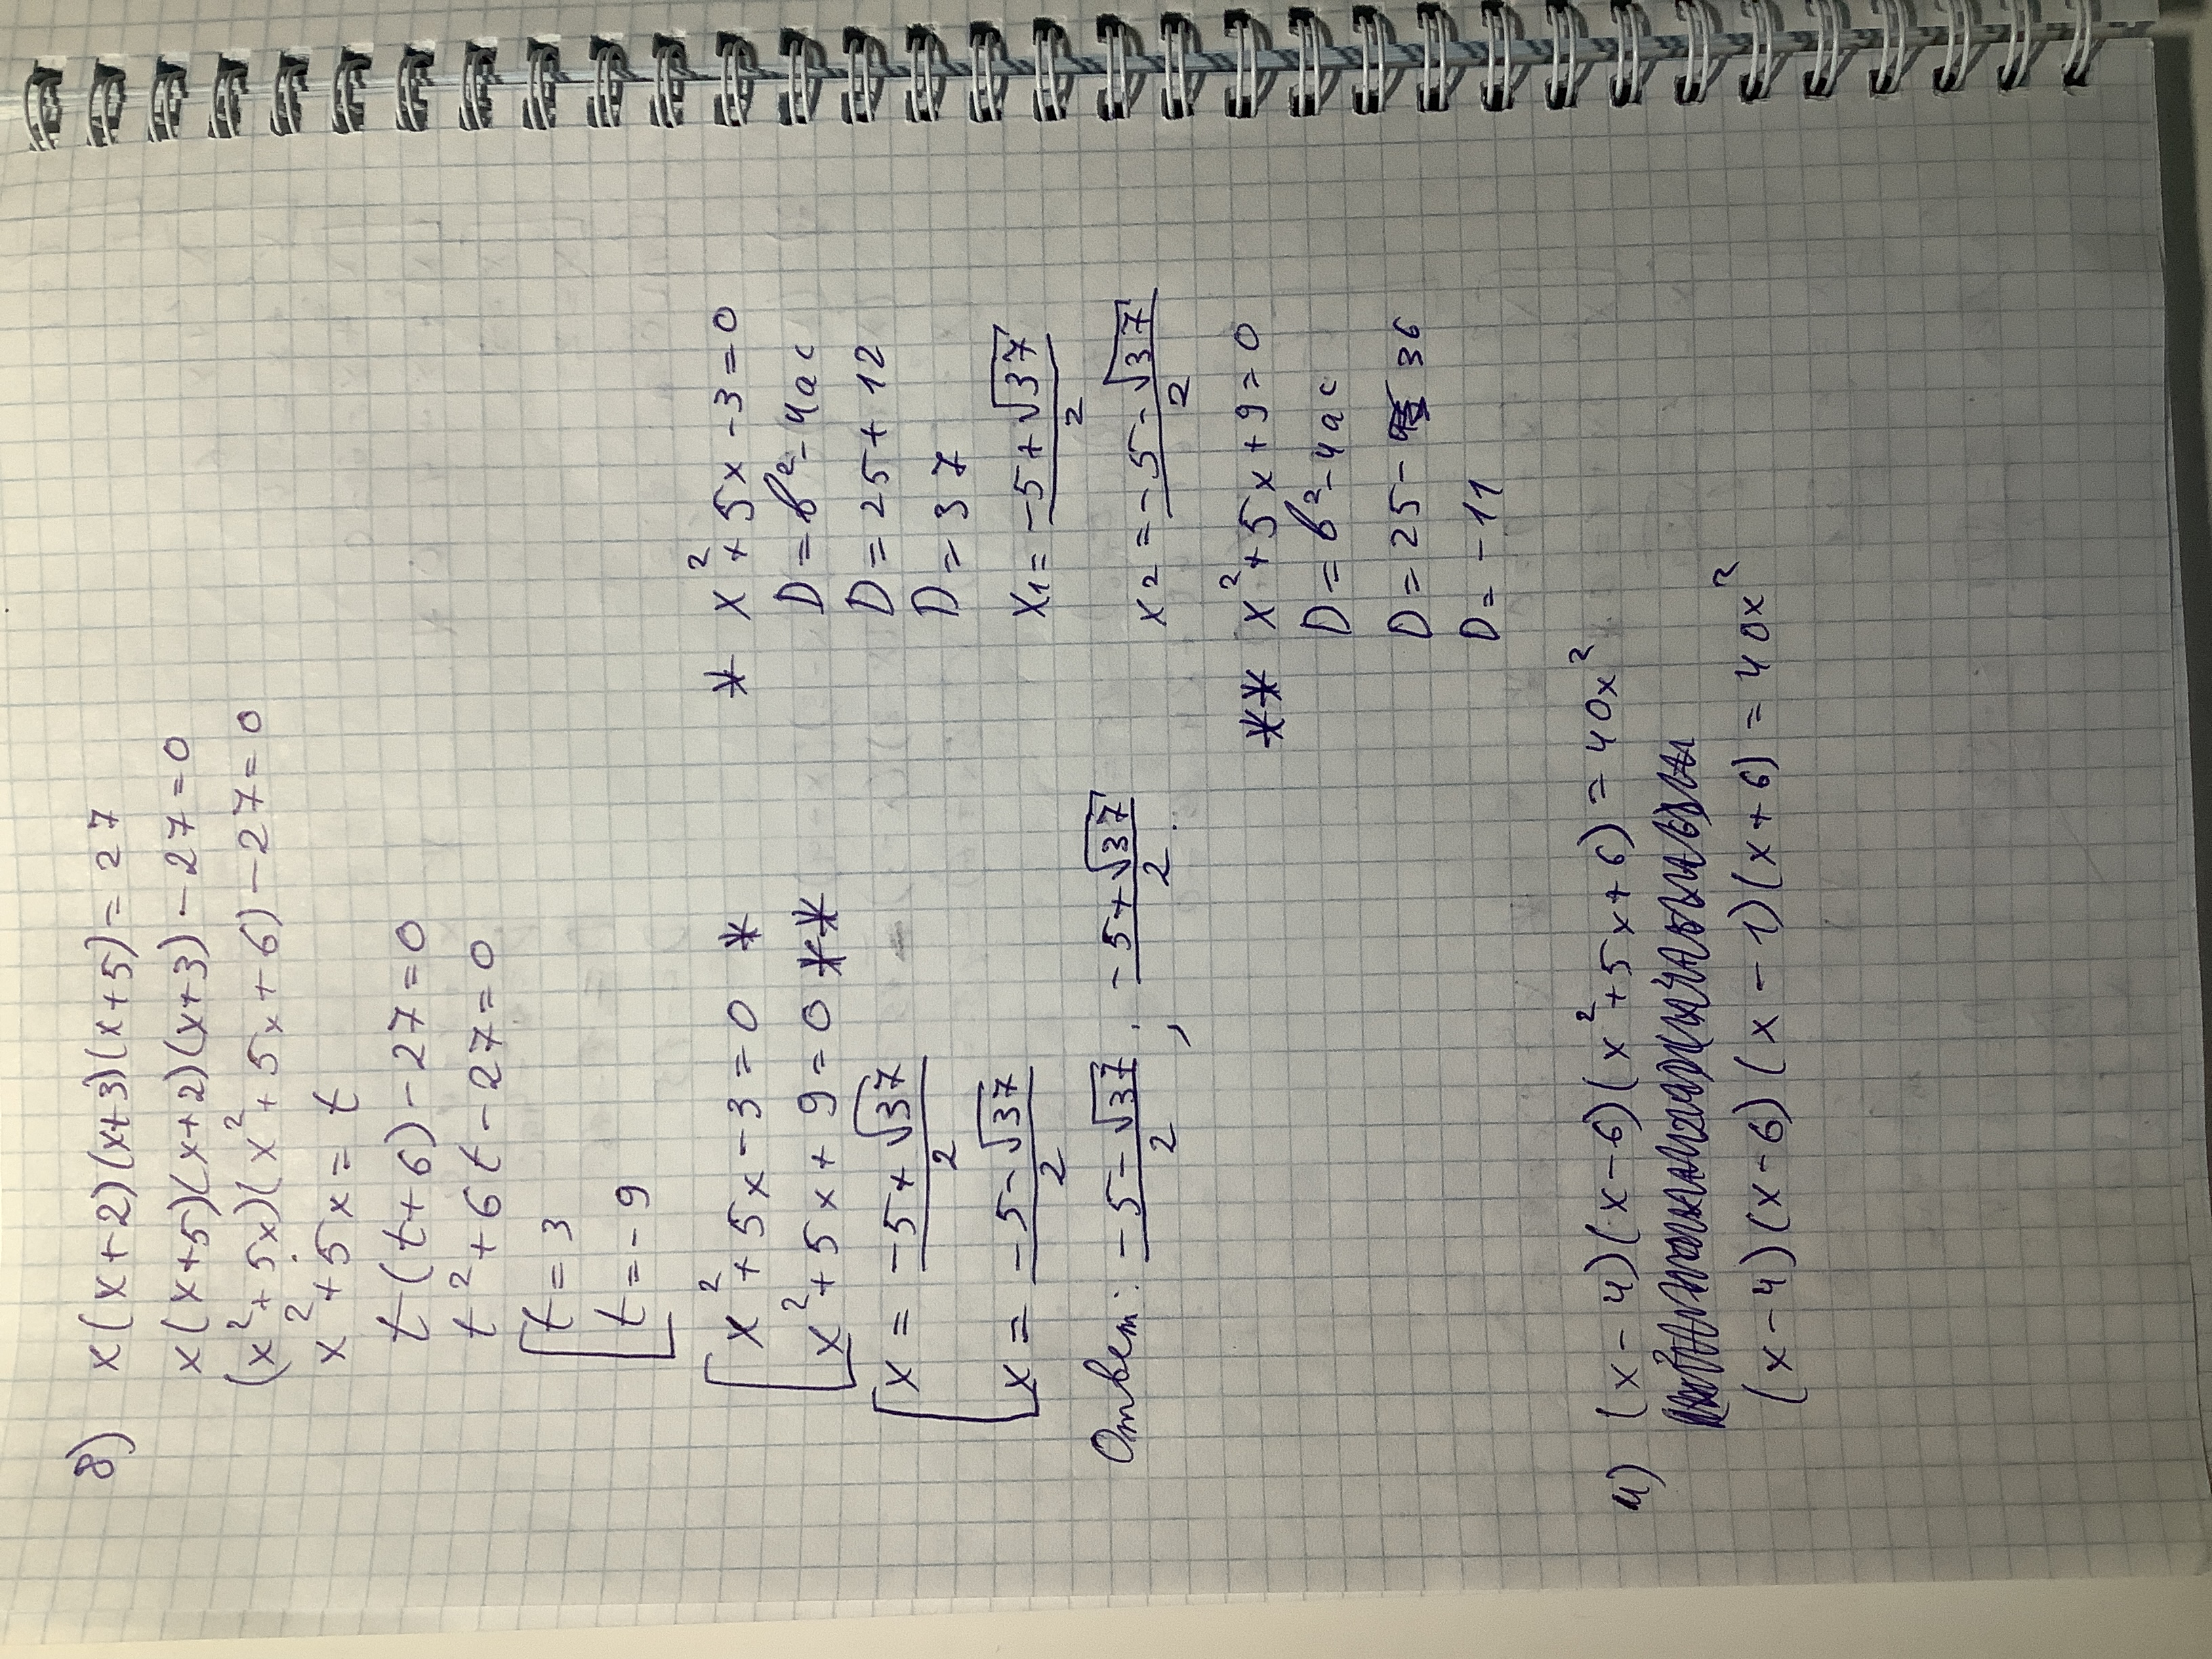 8) x(x+2)(x+3)(x+5)=27
x(x+5)(x+2)(x+3)-27=0
(x²+5x)(x²+5x+6)-27=0
x²+5x=t
t(t+6)-27=0
t²+6t-27=0
[t=3
[t=-9
[x²+5x-3=0 *
[x²+5x+9=0 **
[x = (-5+√37)/2
[x = (-5-√37)/2
Ответ: (-5-√37)/2 ; (-5+√37)/2.
* x²+5x-3=0
D=b²-4ac
D=25+12
D=37
x₁=(-5+√37)/2
x₂=(-5-√37)/2
** x²+5x+9=0
D=b²-4ac
D=25- 36
D=-11
и) (x-4)(x-6)(x²+5x+6)=40x²
(x-4)(x-6)(x-1)(x+6)=40x²